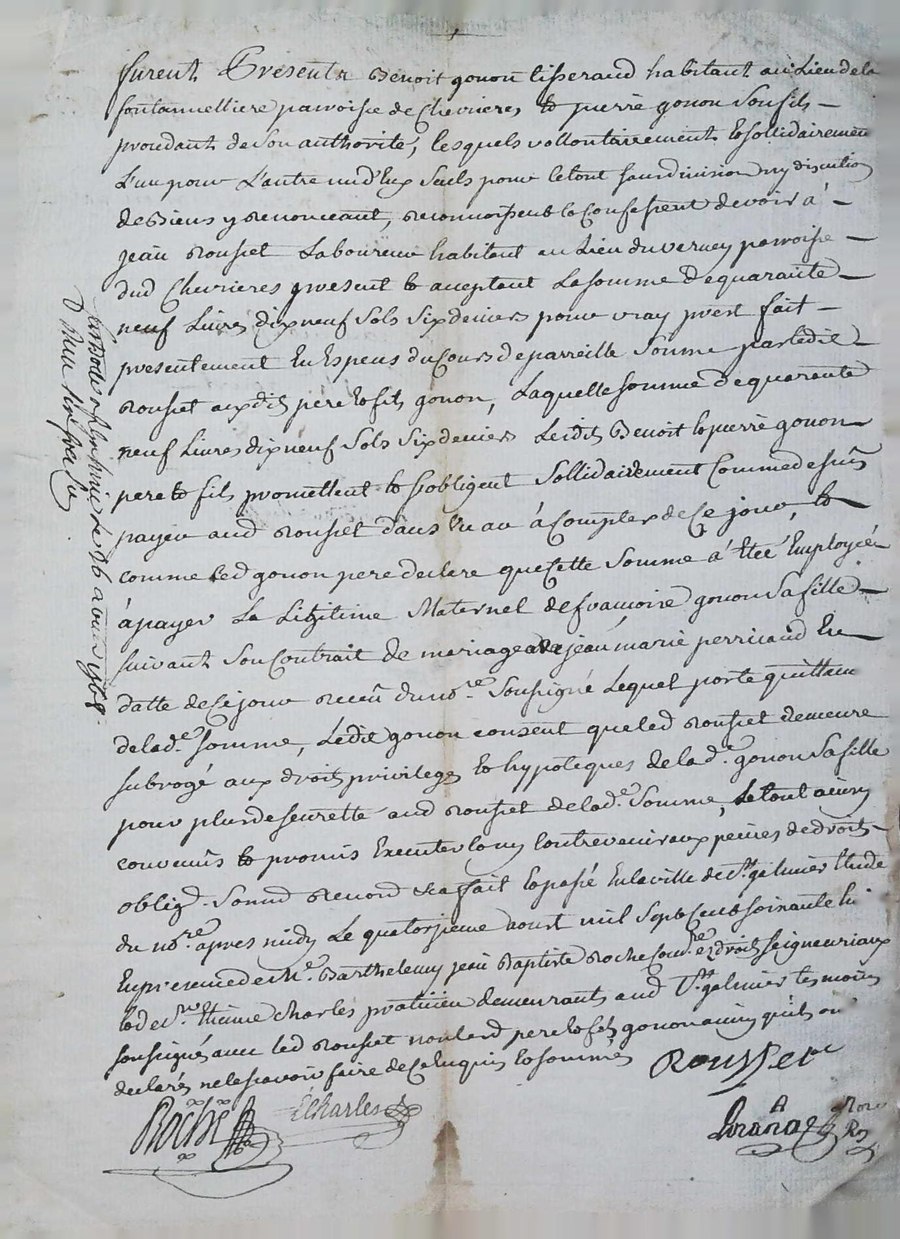 furent Présents Benoit gonon tisserand habitant au Lieu de la
fontannelliere parroisse de Chevrieres & pierre gonon son fils
proudant de son authorité, lesquels vollontairement & sollidairement
L'un pour L'autre un d'Eux seuls pour le tout sans division ny discution
de Biens y Renonceant, reconnoissent & Confessent devoir à
jean Rousset Laboureur habitant au Lieu du verney parroisse
dud Chevrieres present & acceptant La somme de quarante
neuf Livres dix neuf sols six deniers pour vray prest fait
presentement En Especes du Cours de parreille somme par Ledit
Rousset auxdits pere & fils gonon, Laquelle somme de quarante
neuf Livres dix neuf sols six deniers Lesdits Benoit & pierre gonon
pere & fils promettent & s'obligent sollidairement Comme dessus
payer aud Rousset dans Un an à Compter de Ce jour, &
comme Led gonon pere declare que Cette somme à Eté Employée
à payer La Legitime Maternel de francoise gonon sa fille
suivant son Contrait de mariage avec jean marie perricaud En
datte de Ce jour receu du no.re soussigné Lequel porte quittance
de lad.e somme, Ledit gonon consent que led Rousset demeure
subrogé aux droits privileges & hypoteques de lad.e gonon sa fille
pour plus de seurette aud Rousset de lad.e somme, Le tout ainsy
convenus & promis Executer & ny Contrevenir aux peines de droits
oblig.  renond &a fait & passé En la ville de St. galmier Etude
du no.re apres midy Le quatorzieme aoust mil sept Cent soixante huit
En presence de M.e Barthelemy jean Baptiste Roche  droits seigneuriaux
& de sr. Etienne Charles praticien demeurants aud St. galmier temoins
soussignés avec led Rousset non lesd pere & fils gonon ainsy qu'ils ont
declarés ne le scavoir faire de Ce Enquis & sommés
Rousset
Roche ECharles
 st galmier Le 26 aout 1768.